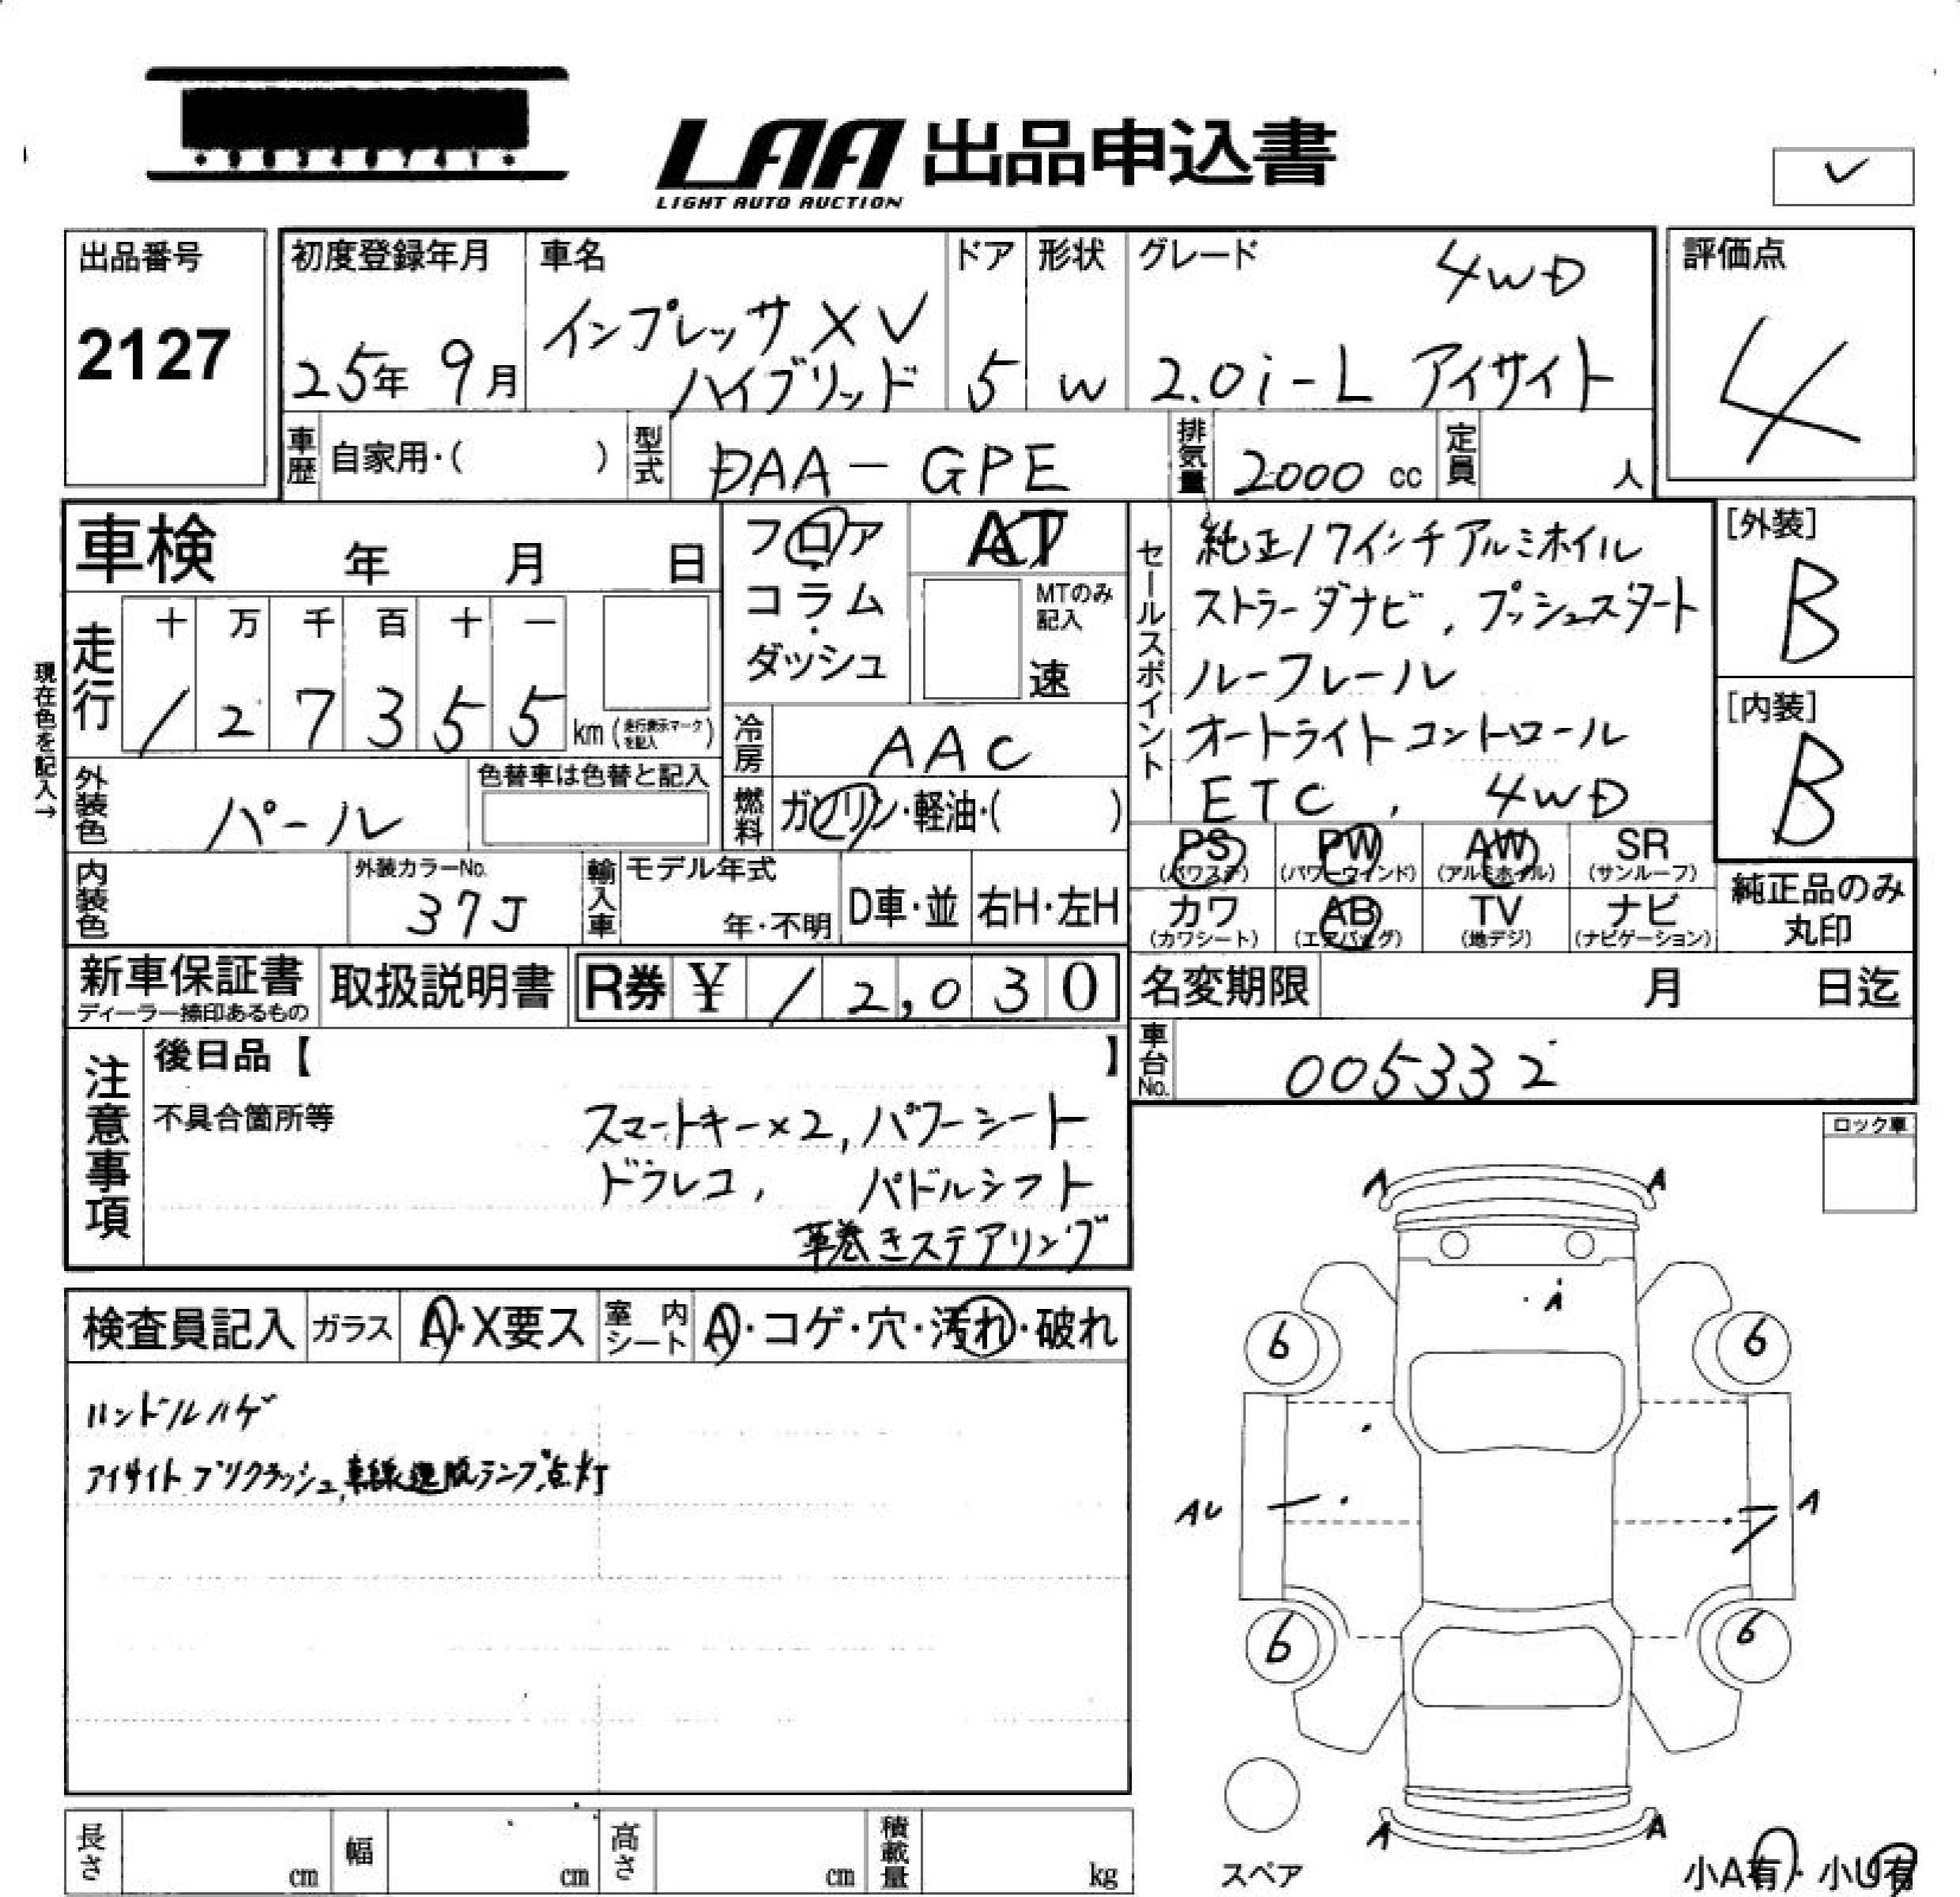 LAA 出品申込書
LIGHT AUTO AUCTION
出品番号
2127
初度登録年月
25年 9月
車名
インプレッサ XV
ハイブリッド
ドア
5
形状
W
グレード
4WD
2.0i-L アイサイト
評価点
4
車歴 自家用・( )
型式 DAA-GPE
排気量 2000 cc
定員 人
車検 年 月 日
フロア
コラム
ダッシュ
AT
MTのみ
記入
速
セールスポイント
純正17インチアルミホイル
ストラーダナビ, プッシュスタート
ルーフレール
オートライトコントロール
ETC, 4WD
[外装]
B
[内装]
B
現在色を記入→
走行
十 万 千 百 十 一
1 2 7 3 5 5 km (走行表示マークを記入)
冷房 AAC
外装色 パール
色替車は色替と記入
燃料 ガソリン・軽油・( )
PS
(パワステ)
PW
(パワーウインド)
AW
(アルミホイル)
SR
(サンルーフ)
カワ
(カワシート)
AB
(エアバッグ)
TV
(地デジ)
ナビ
(ナビゲーション)
純正品のみ
丸印
内装色
外装カラーNo.
37J
輸入車
モデル年式
年・不明
D車・並
右H・左H
新車保証書
ディーラー捺印あるもの
取扱説明書
R券 ¥ 12,030
名変期限 月 日迄
車台No. 005332
注意事項
後日品【 】
不具合箇所等
スマートキー×2, パワーシート
ドラレコ, パドルシフト
革巻きステアリング
ロック車
検査員記入
ガラス A・X要ス
室内シート A・コゲ・穴・汚れ・破れ
ハンドルハゲ
アイサイト プリクラッシュ, 車線逸脱ランプ点灯
A A
6 6
AU A
6 6
A A
スペア
小A有・小U有
長さ cm
幅 cm
高さ cm
積載量 kg